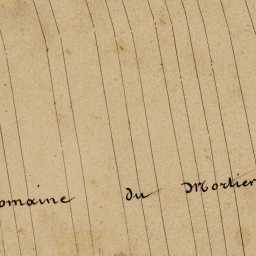 omaine du Mortier